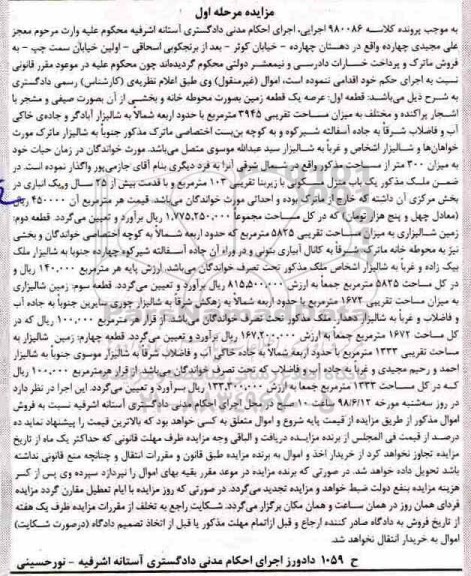 مزایده مرحله اول
به موجب پرونده کلاسه ۹۸۰۰۸۶ اجرایی، اجرای احکام مدنی دادگستری آستانه اشرفیه محکوم علیه وارث مرحوم معجز
علی مجیدی چهارده واقع در دهستان چهارده - خیابان کوثر - بعد از برنجکوبی اسحاقی - اولین خیابان سمت چپ - به
فروش ماترک و پرداخت خسارات دادرسی و نیمعشر دولتی محکوم گردیده‌اند چون محکوم علیه در موعود مقرر قانونی
نسبت به اجرای حکم خود اقدامی ننموده است، اموال (غیرمنقول) وی طبق اعلام نظریه‌ی (کارشناس) رسمی دادگستری
به شرح ذیل می‌باشد: قطعه اول: عرصه یک قطعه زمین بصورت محوطه خانه و بخشی از آن بصورت صیفی و مشجر با
اشجار پراکنده و مختلف به میزان مساحت تقریبی ۳۹۴۵ مترمربع با حدود اربعه شمالاً به شالیزار آبادگر و جاده‌ی خاکی
آب و فاضلاب شرقاً به جاده آسفالته شیرکوه و به کوچه بن‌بست اختصاصی ماترک مذکور جنوباً به شالیزار ماترک مورث
خواهان‌ها و شالیزار اشخاص و غرباً به شالیزار سید عبدالله موسوی متصل می‌باشد. مورث خواندگان در زمان حیات خود
به میزان ۳۰۰ متر از مساحت مذکور واقع در شمال شرقی آنرا به فرد دیگری بنام آقای جازمی‌پور واگذار نموده است. در
ضمن ملک مذکور یک باب منزل مسکونی با زیربنا تقریبی ۱۰۳ مترمربع و با قدمت بیش از ۲۵ سال و یک انباری در
بخش مرکزی آن داشته که خارج از ماترک بوده و احداثی مورث خواندگان می‌باشد. قیمت هر مترمربع آن ۴۵۰۰۰۰ ریال
(معادل چهل و پنج هزار تومان) که در کل مساحت مجموعاً ۱,۷۷۵,۲۵۰,۰۰۰ ریال برآورد و تعیین می‌گردد. قطعه دوم:
زمین شالیزاری به میزان مساحت تقریبی ۵۸۲۵ مترمربع که حدود اربعه شمالاً به کوچه اختصاصی خواندگان و بخشی
نیز به محوطه خانه ماترک، شرقاً به کانال آبیاری بتونی و در وراء آن جاده آسفالته شیرکوه چهارده جنوباً به شالیزار ملک
بیک زاده و غرباً به شالیزار اشخاص ملک مذکور تحت تصرف خواندگان می‌باشد. ارزش پایه هر مترمربع ۱۴۰,۰۰۰ ریال و
در کل مساحت ۵۸۲۵ مترمربع جمعاً به ارزش ۸۱۵,۵۰۰,۰۰۰ ریال برآورد و تعیین می‌گردد. قطعه سوم: زمین شالیزاری
به میزان مساحت تقریبی ۱۶۷۲ مترمربع با حدود اربعه شمالاً به زهکش شرقاً به شالیزار چوری سایرین جنوباً به جاده آب
و فاضلاب و غرباً به شالیزار دهدار ملک مذکور تحت تصرف خواندگان می‌باشد. از قرار هر مترمربع ۱۰۰,۰۰۰ ریال که در
کل مساحت ۱۶۷۲ مترمربع جمعاً به ارزش ۱۶۷,۲۰۰,۰۰۰ ریال برآورد و تعیین می‌گردد. قطعه چهارم: زمین شالیزار به
مساحت تقریبی ۱۳۳۳ مترمربع با حدود اربعه شمالاً به جاده خاکی آب و فاضلاب شرقاً به شالیزار موسوی جنوباً به شالیزار
احمد و رحیم مجیدی و غرباً به جاده آب و فاضلاب که تحت تصرف خواندگان می‌باشد. از قرار هرمترمربع ۱۰۰,۰۰۰ ریال
که در کل مساحت ۱۳۳۳ مترمربع جمعا به ارزش ۱۳۳,۳۰۰,۰۰۰ ریال برآورد و تعیین می‌گردد. این اجرا در نظر دارد
در روز سه‌شنبه مورخه ۹۸/۶/۱۲ ساعت ۱۰ صبح در محل اجرای احکام مدنی دادگستری آستانه اشرفیه نسبت به فروش
اموال مذکور از طریق مزایده از قیمت پایه شروع و اموال متعلق به کسی خواهد بود که بالاترین قیمت را پیشنهاد نماید ده
درصد از قیمت فی المجلس از برنده مزایده دریافت و الباقی وجه مزایده ظرف مهلت قانونی که حداکثر یک ماه از تاریخ
مزایده تجاوز نخواهد کرد از خریدار اخذ و اموال به برنده مزایده طبق قانون و مقررات انتقال و چنانچه منع قانونی نداشته
باشد تحویل داده خواهد شد. در صورتی که برنده مزایده در موعد مقرر بقیه بهای اموال را نپردازد سپرده وی پس از کسر
هزینه مزایده بنفع دولت ضبط خواهد و مزایده تجدید می‌گردد. در صورتی که روز مزایده با ایام تعطیل مقارن گردد مزایده
فردای همان روز در همان ساعت و همان مکان برگزار می‌گردد. شکایت راجع به تخلف از مقررات مزایده ظرف یک هفته
از تاریخ فروش به دادگاه صادر کننده ارجاع و قبل ازاتمام مهلت مذکور یا قبل از اتخاذ تصمیم دادگاه (درصورت شکایت)
اموال به خریدار انتقال نخواهد شد.
ح ۱۰۵۹ دادورز اجرای احکام مدنی دادگستری آستانه اشرفیه - نورحسینی